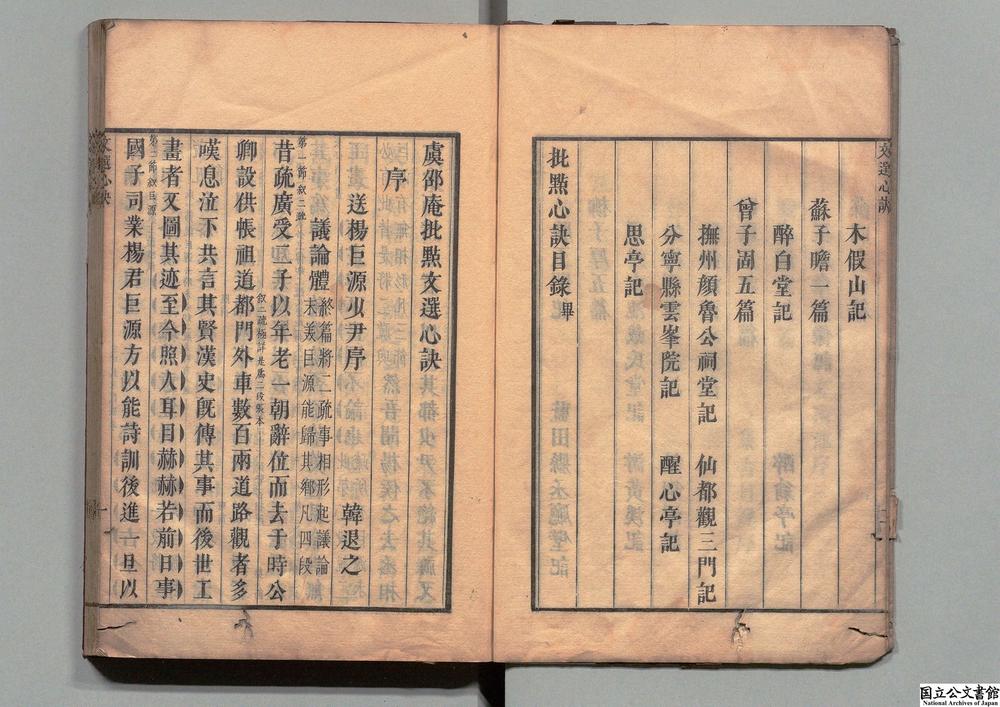 文選心訣
木假山記
蘇子瞻一篇
醉白堂記
曾子固五篇
撫州顔魯公祠堂記　仙都觀三門記
分寧縣雲峯院記　醒心亭記
思亭記
批點心訣目錄畢
虞邵庵批點文選心訣
序
送楊巨源少尹序　韓退之
議論體
終篇將二疏事相形起議論
末羙巨源能歸其鄉凡四段
昔疏廣受二子以年老一朝辭位而去于時公
第一節叙二疏
叙二疏極詳是爲二段張本
卿設供帳祖道都門外車數百兩道路觀者多
嘆息泣下共言其賢漢史旣傳其事而後世工
畫者又圖其迹至今照人耳目赫赫若前日事
第二節叙巨源
國子司業楊君巨源方以能詩訓後進一旦以
文選心訣
国立公文書館
National Archives of Japan